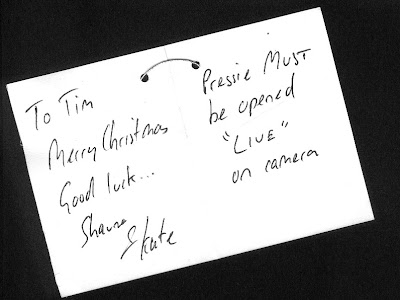 To Tim
Merry Christmas
Good luck...
Shauna
& Kate
Pressie MUST
be opened
"LIVE"
on camera